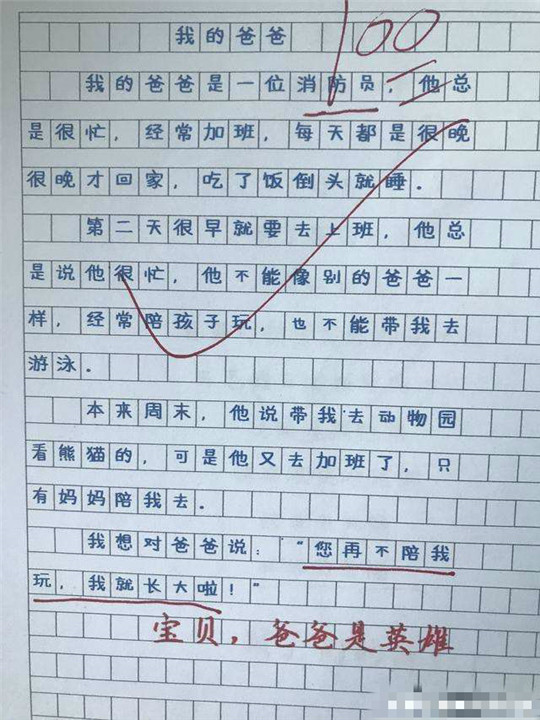 我的爸爸
100
我的爸爸是一位消防员,他总
是很忙,经常加班,每天都是很晚
很晚才回家,吃了饭倒头就睡.
第二天很早就要去上班,他总
是说他很忙,他不能像别的爸爸一
样,经常陪孩子玩,也不能带我去
游泳.
本来周末,他说带我去动物园
看熊猫的,可是他又去加班了,只
有妈妈陪我去.
我想对爸爸说:“您再不陪我
玩,我就长大啦!”
宝贝,爸爸是英雄